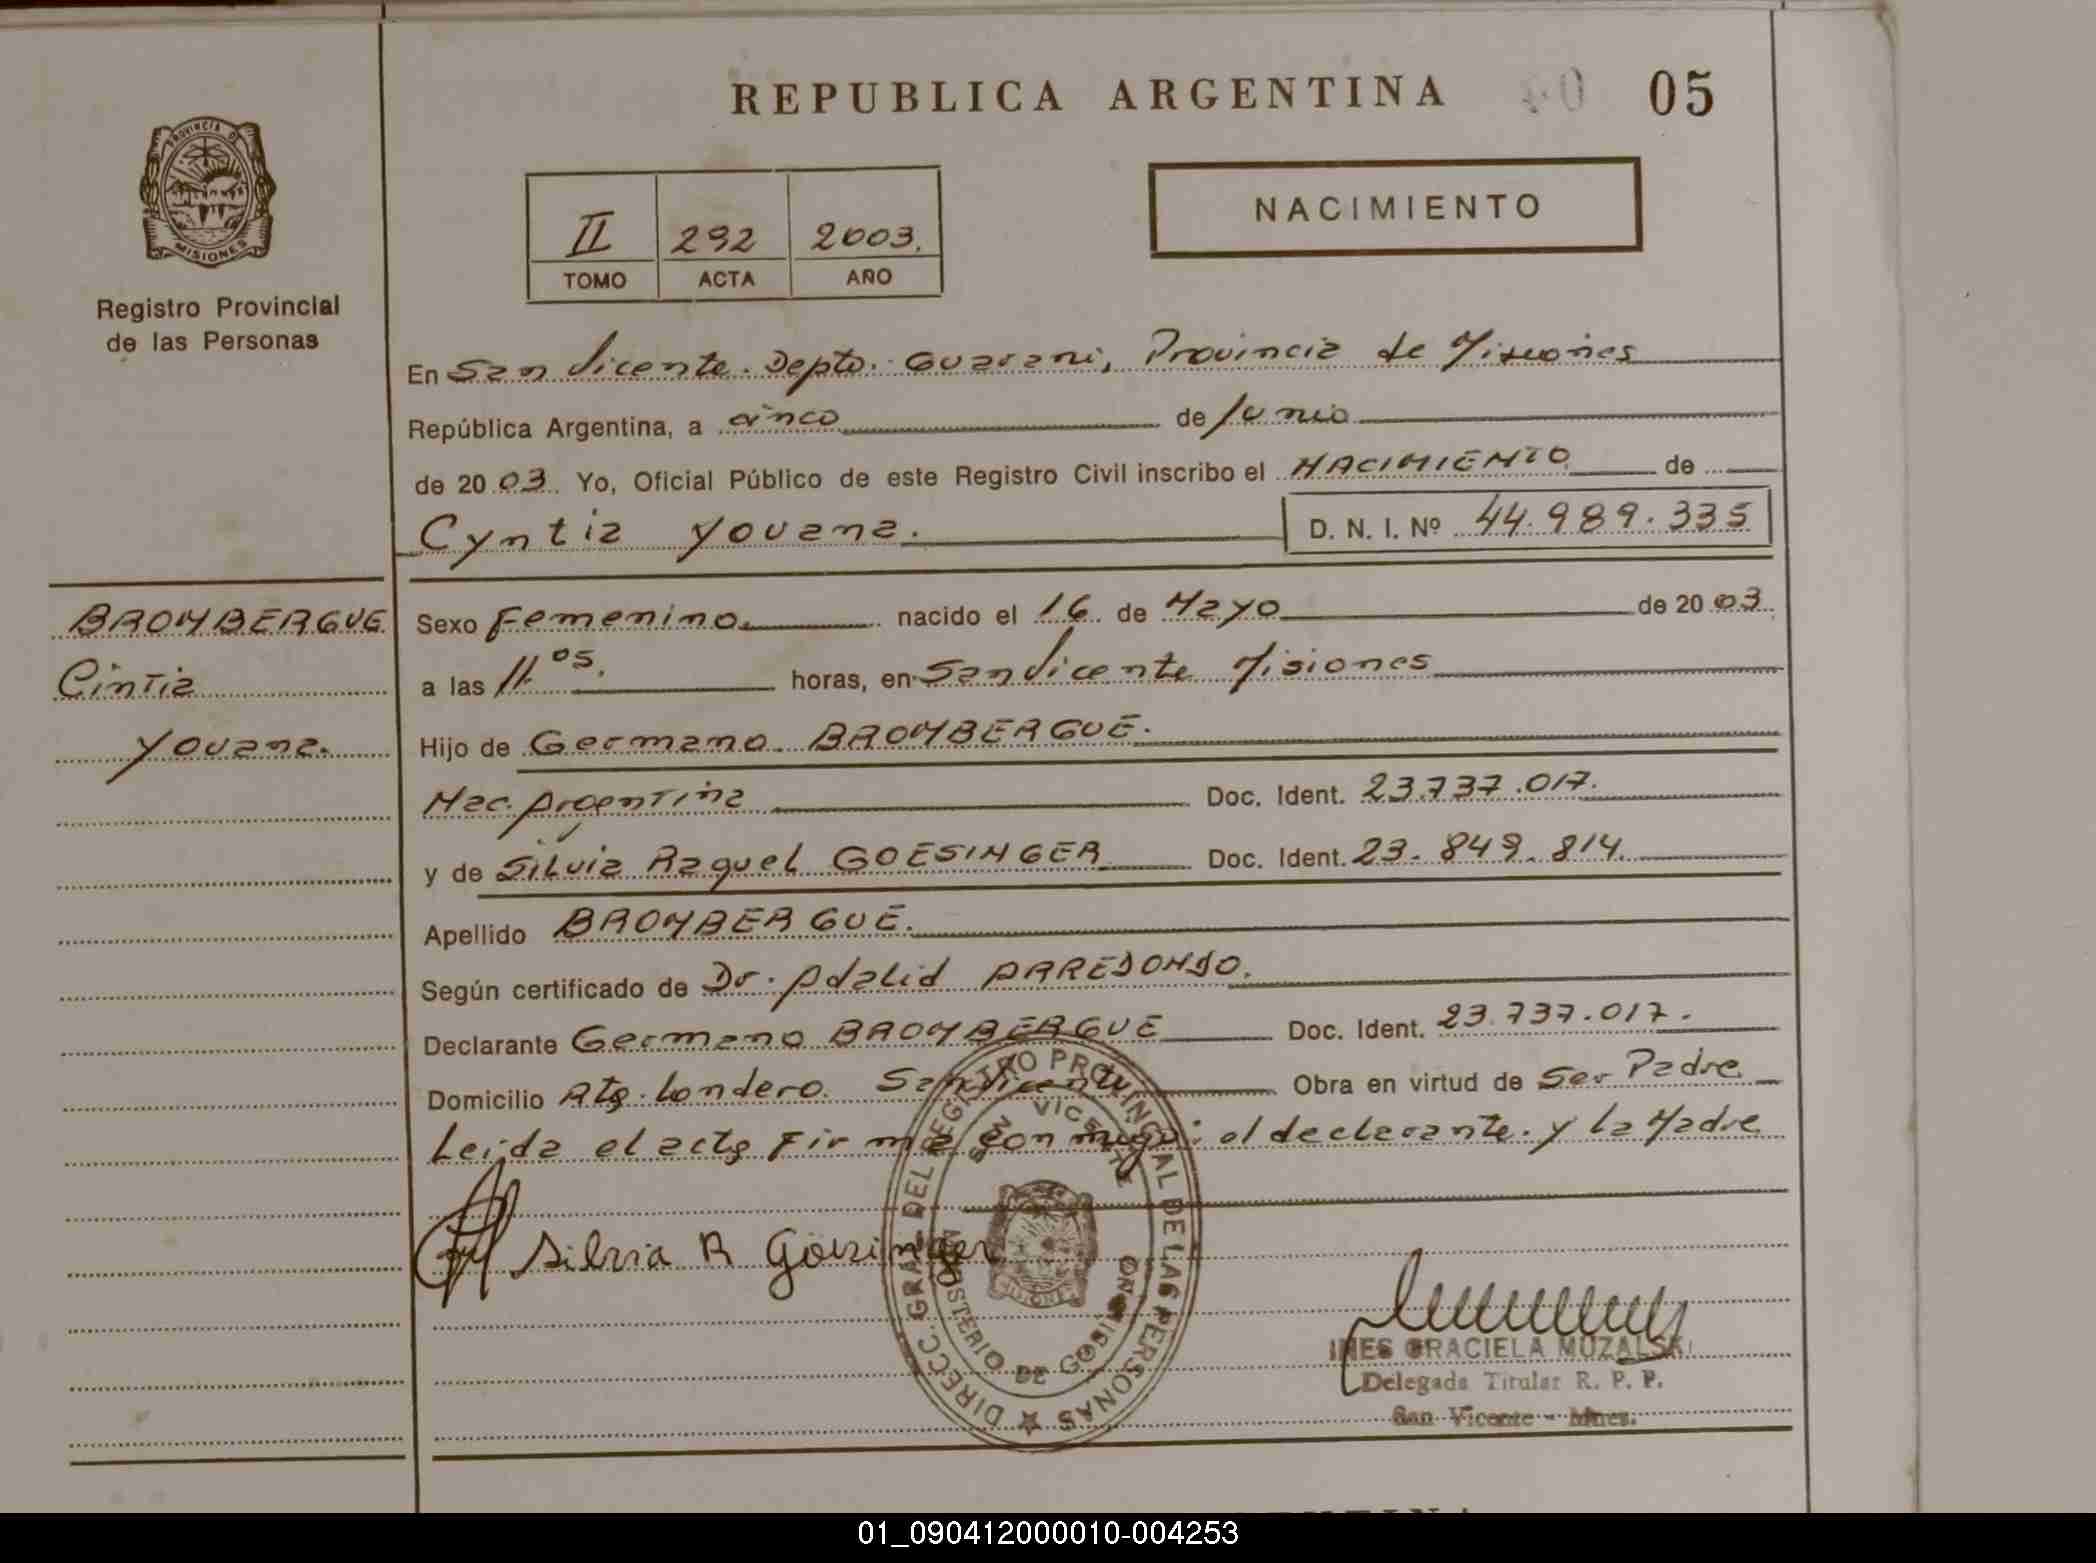 REPUBLICA ARGENTINA 05
PROVINCIA DE
MISIONES
Registro Provincial
de las Personas
II 292 2003.
TOMO ACTA AÑO
NACIMIENTO
En San Vicente. Depto. Guarani, Provincia de Misiones
República Argentina, a cinco de Junio
de 2003 Yo, Oficial Público de este Registro Civil inscribo el NACIMIENTO de
Cyntia Yovana. D. N. I. Nº 44.989.335
BROMBERGUE
Cintia
Yovana.
Sexo Femenino. nacido el 16 de Mayo de 2003
a las 11.05. horas, en San Vicente Misiones
Hijo de Germano BROMBERGUE.
Nac. Argentina Doc. Ident. 23.737.017.
y de Silvia Raquel GOESINGER Doc. Ident. 23.849.814.
Apellido BROMBERGUE.
Según certificado de Dr. Adalid ARREDONDO.
Declarante Germano BROMBERGUE Doc. Ident. 23.737.017.
Domicilio Londero. San Vicente Obra en virtud de Ser Padre
Leida el acta Firma conmigo: el declarante. y la Madre
Silvia R Göesinger
DIRECC. GRAL. DEL REGISTRO PROVINCIAL DE LAS PERSONAS
SAN VICENTE
MINISTERIO DE GOBIERNO
MISIONES
INES GRACIELA MUZALSKI
Delegada Titular R. P. P.
San Vicente - Mnes.
01_090412000010-004253